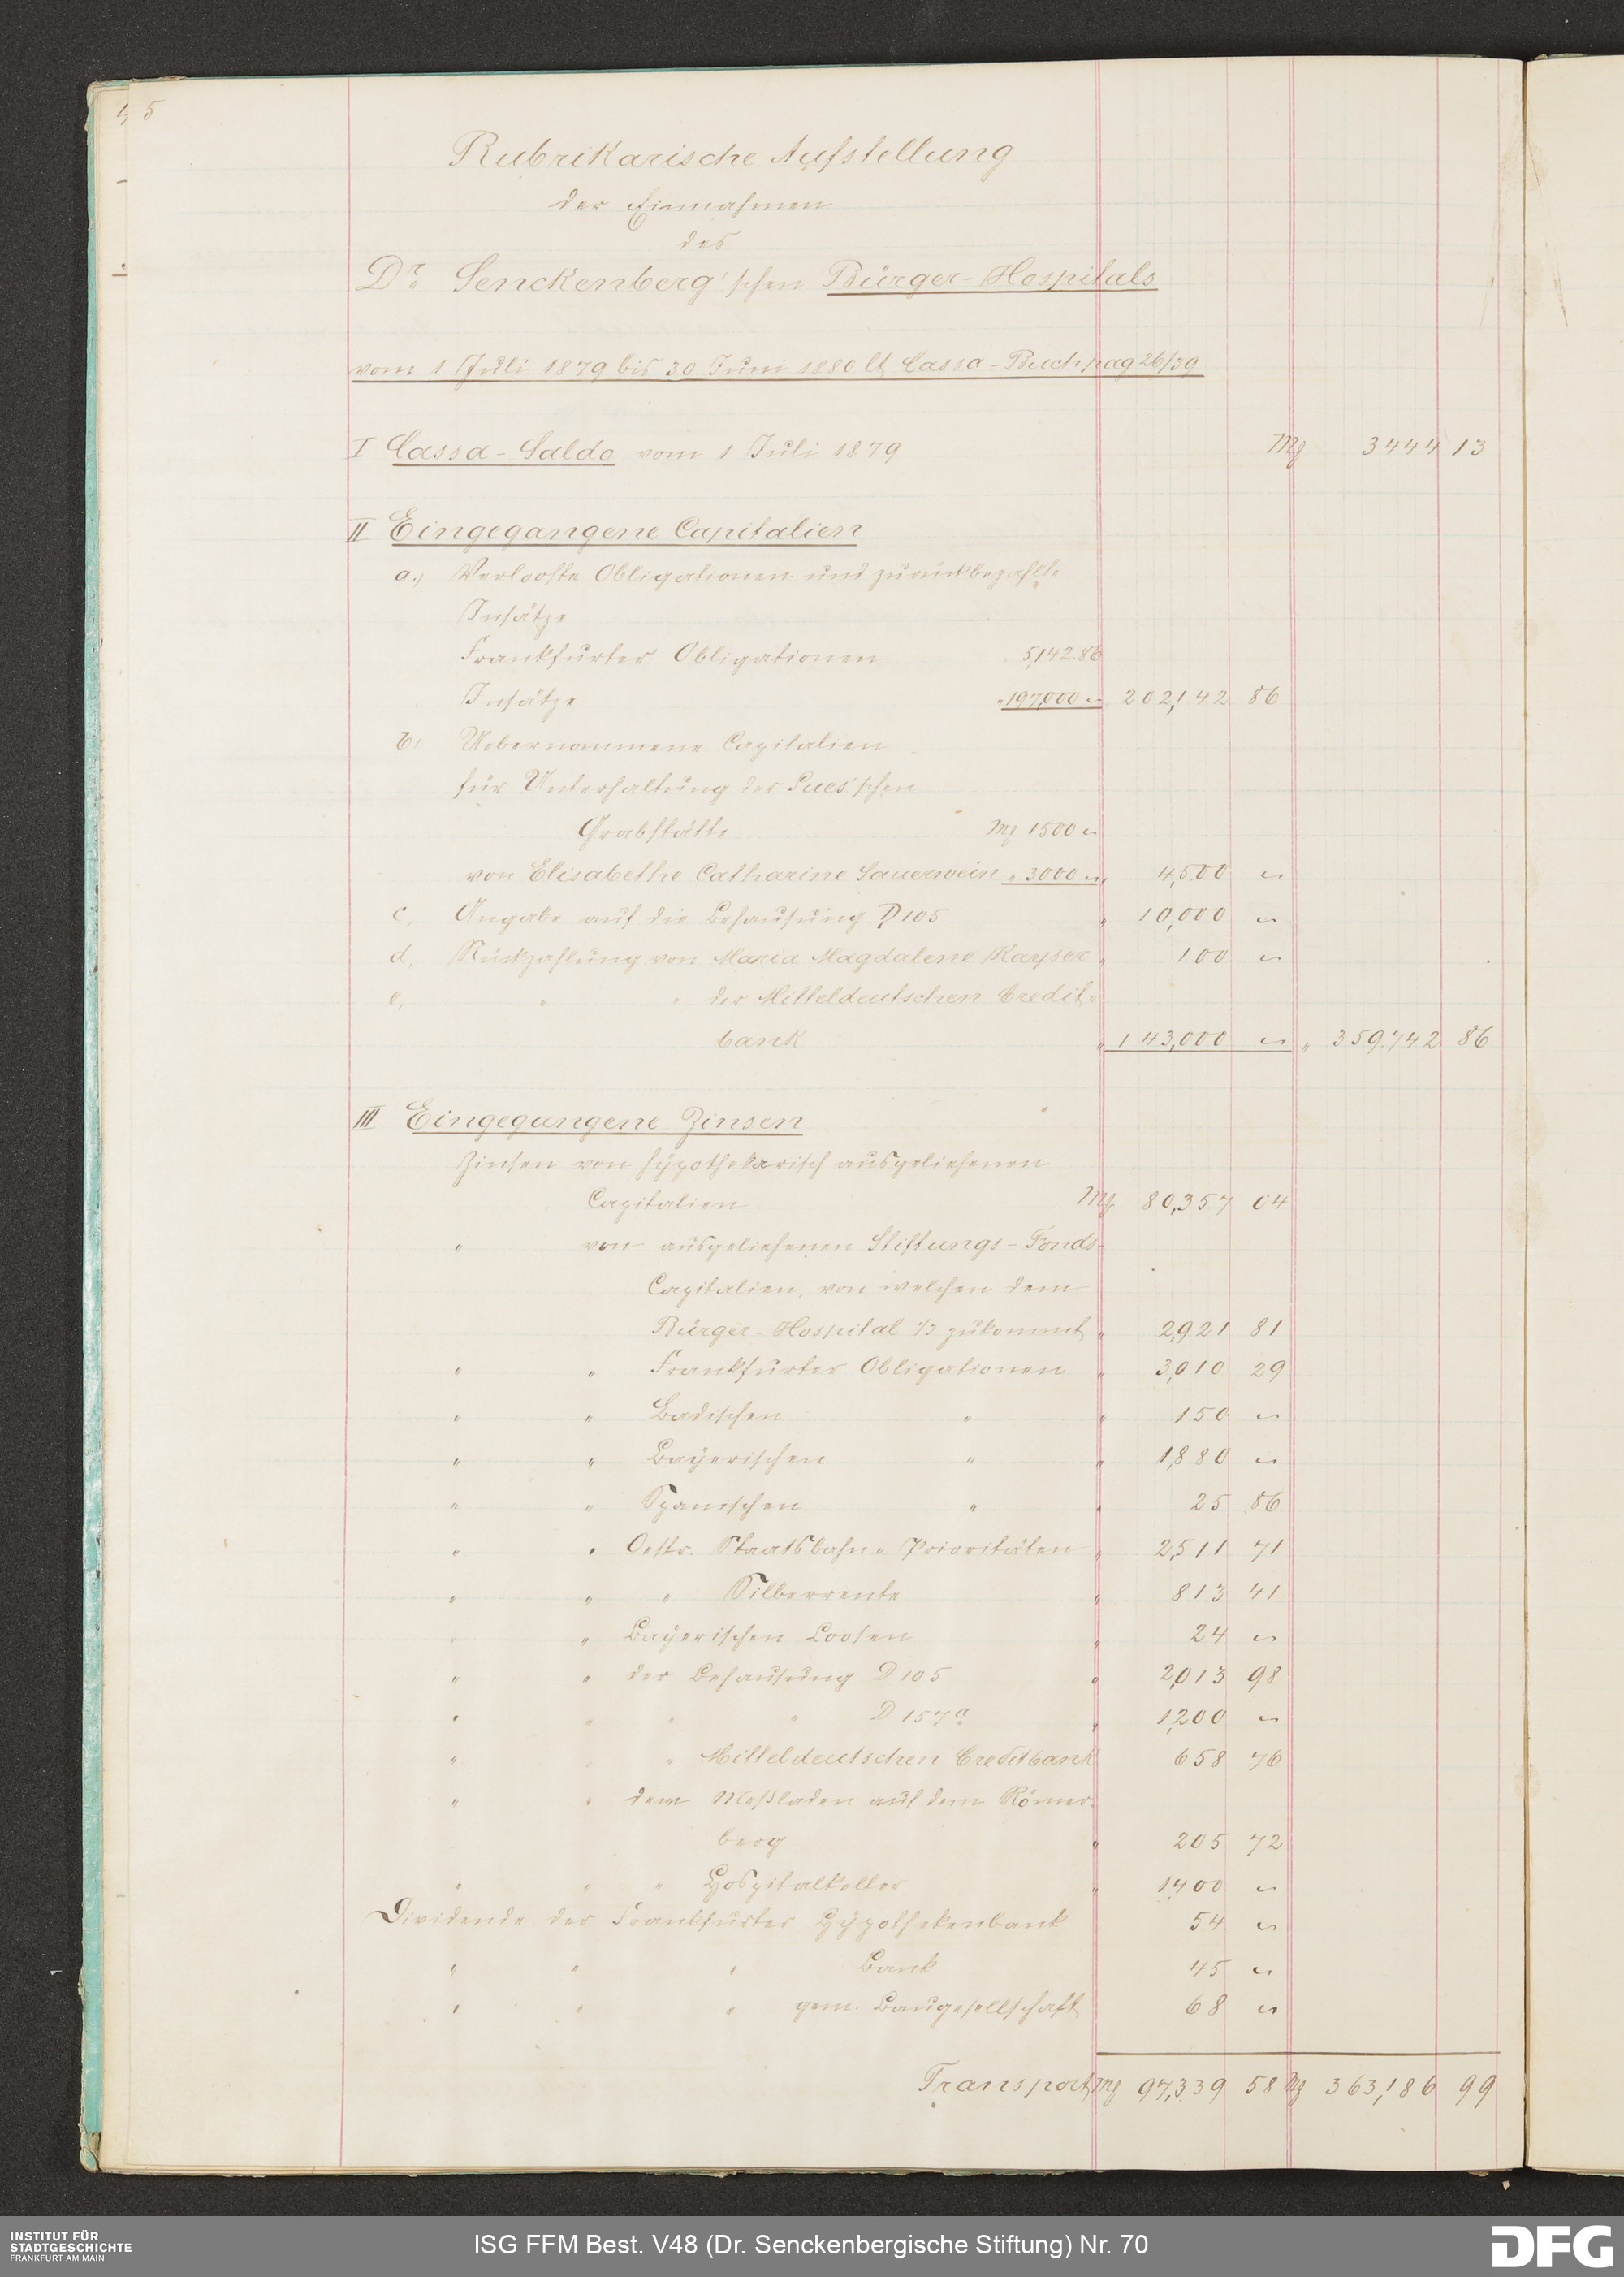 5
Rubrikarische Aufstellung
der Einnahmen
des
Dr. Senckenberg'schen Bürger-Hospitals
vom 1 Juli 1879 bis 30 Juni 1880 lt Cassa-Buch pag 26/39
I Cassa-Saldo vom 1 Juli 1879 Mf 3444 13
II Eingegangene Capitalien
a.) Verlooste Obligationen und zurückbezahlte
Insätze
Frankfurter Obligationen 5,142.86
Insätze " 197,000 ~ " 202,142 86
b, Uebernommene Capitalien
für Unterhaltung der Pues'schen
Grabstätte Mf 1500 ~
von Elisabethe Catharine Sauerwein " 3000 ~ " 4,500 ~
c, Angabe auf die Behausung D 105 " 10,000 ~
d, Rückzahlung von Maria Magdalene Kayser " 100 ~
e, " " der Mitteldeutschen Credit-
bank " 143,000 ~ " 359,742 86
III Eingegangene Zinsen
Zinsen von hypothekarisch ausgeliehenen
Capitalien Mf 80,357 04
" von ausgeliehenen Stiftungs-Fonds-
Capitalien, von welchen dem
Bürger-Hospital 1/3 zukommt " 2,921 81
" " Frankfurter Obligationen " 3,010 29
" " Badischen " " 150 ~
" " Bayerischen " " 1,880 ~
" " Spanischen " " 25 86
" " Oestr. Staatsbahn-Prioritäten " 2,511 71
" " " Silberrente " 813 41
" " Bayerischen Loosen " 24 ~
" " der Behausung D 105 " 2,013 98
" " " " D 157a " 1,200 ~
" " " Mitteldeutschen Creditbank 658 76
" " dem Meßladen auf dem Römer-
berg " 205 72
" " " Hospitalkeller " 1,400 ~
Dividende der Frankfurter Hypothekenbank 54 ~
" " " Bank 45 ~
" " " gem. Baugesellschaft 68 ~
Transport Mf 97,339 58 Mf 363,186 99
INSTITUT FÜR
STADTGESCHICHTE
FRANKFURT AM MAIN
ISG FFM Best. V48 (Dr. Senckenbergische Stiftung) Nr. 70
DFG